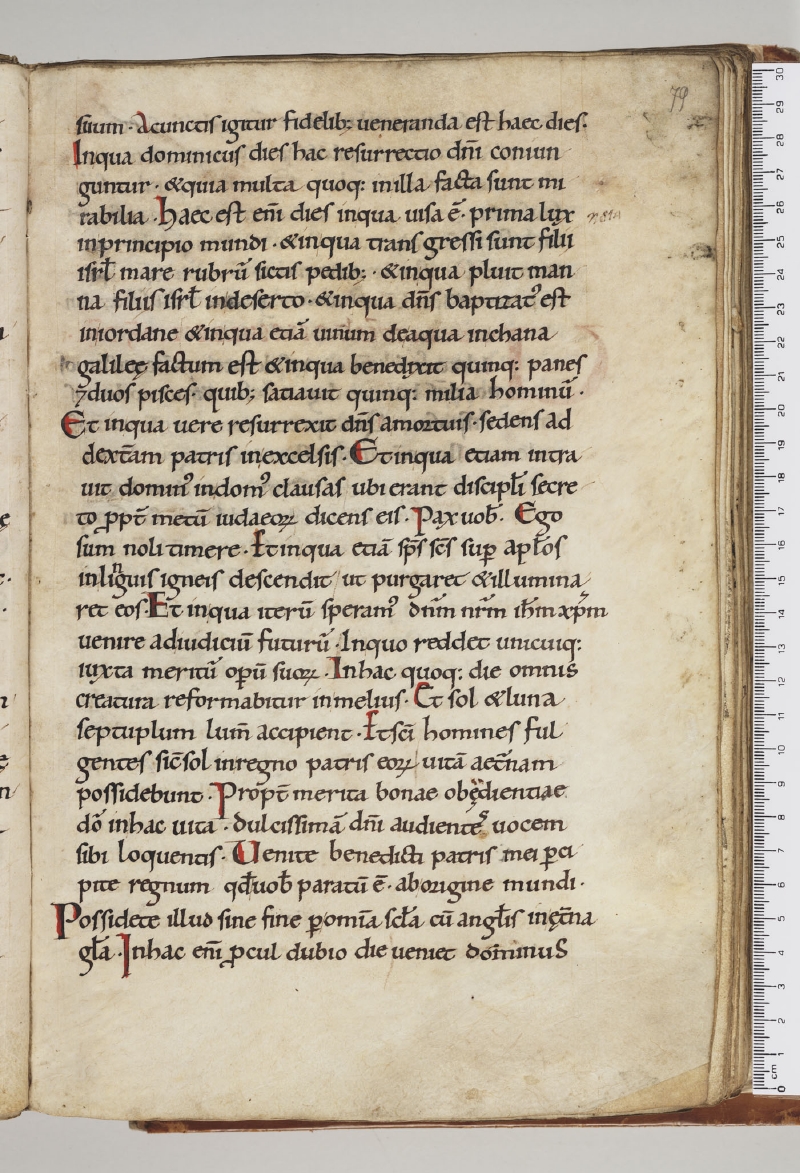 79
suum · A cunctis igitur fidelib; ueneranda est haec dies.
Inqua dominicus dies hac resurrectio dñi coniun
guntur · &quia multa quoq; inilla facta sunt mi
rabilia · Haec est eni dies inqua uisa ē · prima lux
inprincipio mundi · &inqua transgressi sunt filii
isrł mare rubrū siccis pedib; · &inqua pluit man
na filiis isrł indeserto · &inqua dñs baptizatꝰ est
iniordane &inqua etiā uinum deaqua inchana
galileę factum est &inqua benedixit quinq; panes
⁊duos pisces · quib; satiauit quinq; milia hominū ·
Et inqua uere resurrexit dñs amortuis · sedens ad
dext̄am patris inexcelsis · Et inqua etiam intra
uit dominꝰ indomꝰ clausas ubi erant discipłi secre
to ꝓpt̄ metū iudaeoꝝ dicens eis · Pax uob̄ · Ego
sum nolitimere · Et inqua etiā sp̄s sc̄s suꝑ apłos
inliguis igneis descendit ut purgaret &illumina
ret eos · Et inqua iterū speramꝰ dñm nr̄m ih̄m xp̄m
uenire adiudiciū futurū · Inquo reddet unicuiq;
iuxta meritū opū suoꝝ · Inhac quoq; die omnis
creatura reformabitur inmelius · Et sol &luna
septuplum lum̄ accipient · Et sc̄i homines ful
gentes sic̄ sol inregno patris eoꝝ uitā aet̄nam
possidebunt · Propt̄ merita bonae obędientiae
dō inhac uita · dulcissimā dñi audientes uocem
sibi loquentis · Uenite benedicti patris mei ꝑci
pite regnum qd̄ uob̄ paratū ē · aborigine mundi ·
Possidete illud sine fine ꝑ omia scła cū angłis inęt̄na
gła · Inhac eni ꝓcul dubio die ueniet dominus